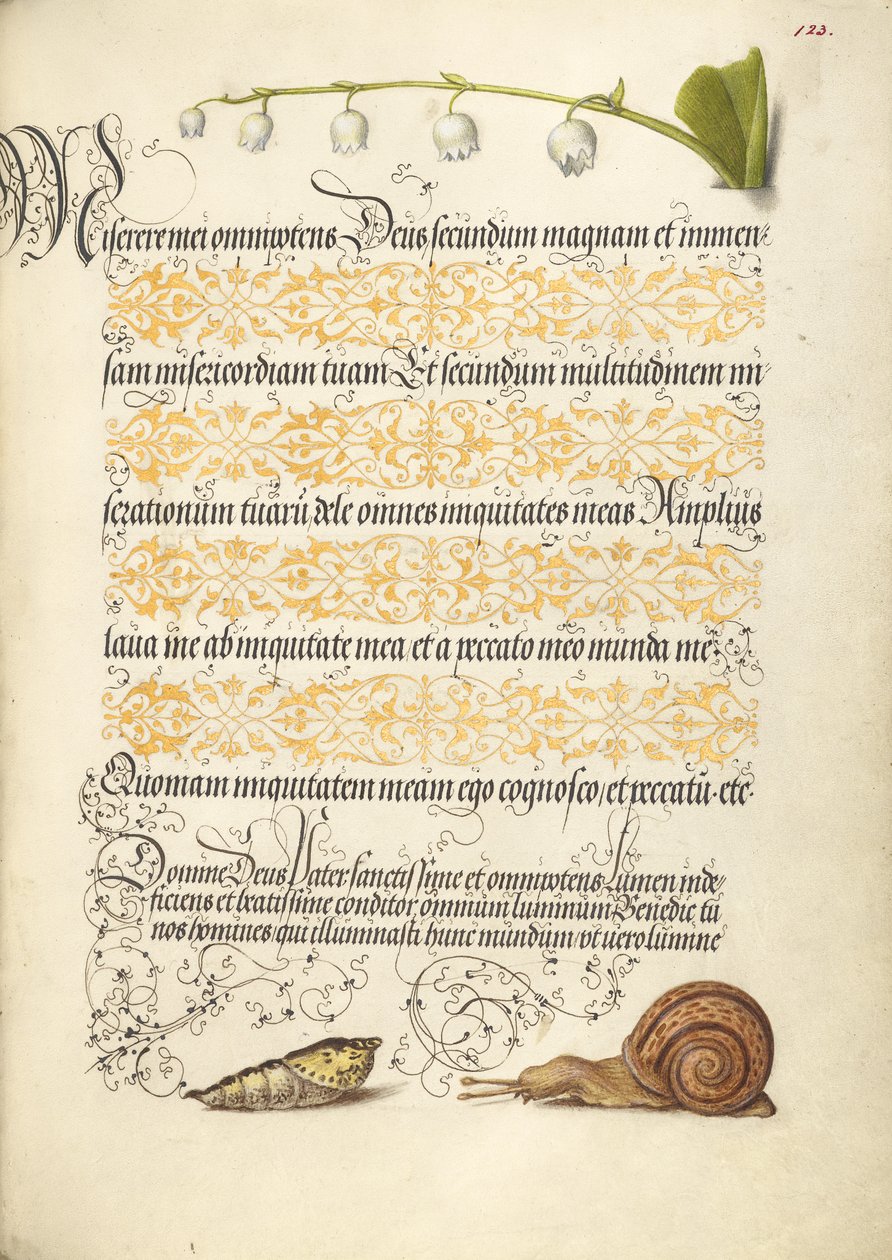 123.
Miserere mei omnipotens Deus, secundum magnam et immen-
sam misericordiam tuam Et secundum multitudinem mi-
serationum tuarū, dele omnes iniquitates meas Amplius
laua me ab iniquitate mea, et a peccato meo munda me.
Quoniam iniquitatem meam ego cognosco, et peccatū. etc.
Domine Deus Pater sanctissime et omnipotens Lumen inde-
ficiens et beatissime conditor omnium luminum Benedic tu
nos homines, qui illuminasti hunc mundum, vt vero lumine